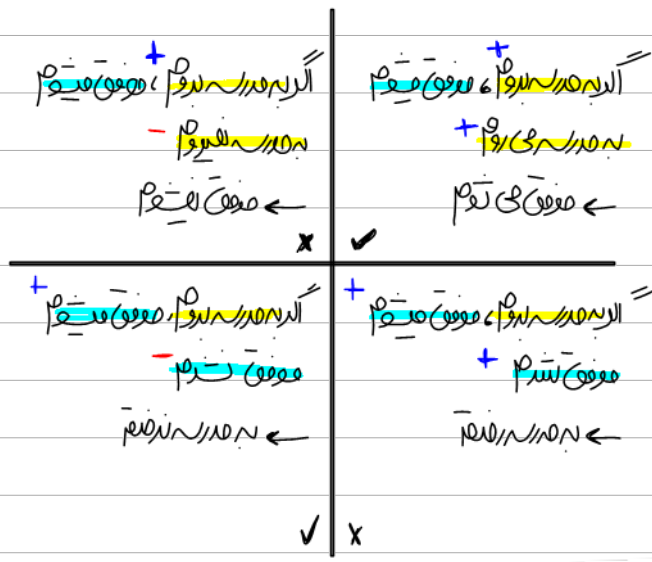 اگر به مدرسه بروم، موفق میشوم
به مدرسه می روم
← موفق می شوم
اگر به مدرسه بروم، موفق میشوم
به مدرسه نمیروم
← موفق نمیشوم
اگر به مدرسه بروم، موفق میشوم
موفق شدم
← به مدرسه رفتم
اگر به مدرسه بروم، موفق میشوم
موفق نشدم
← به مدرسه نرفتم